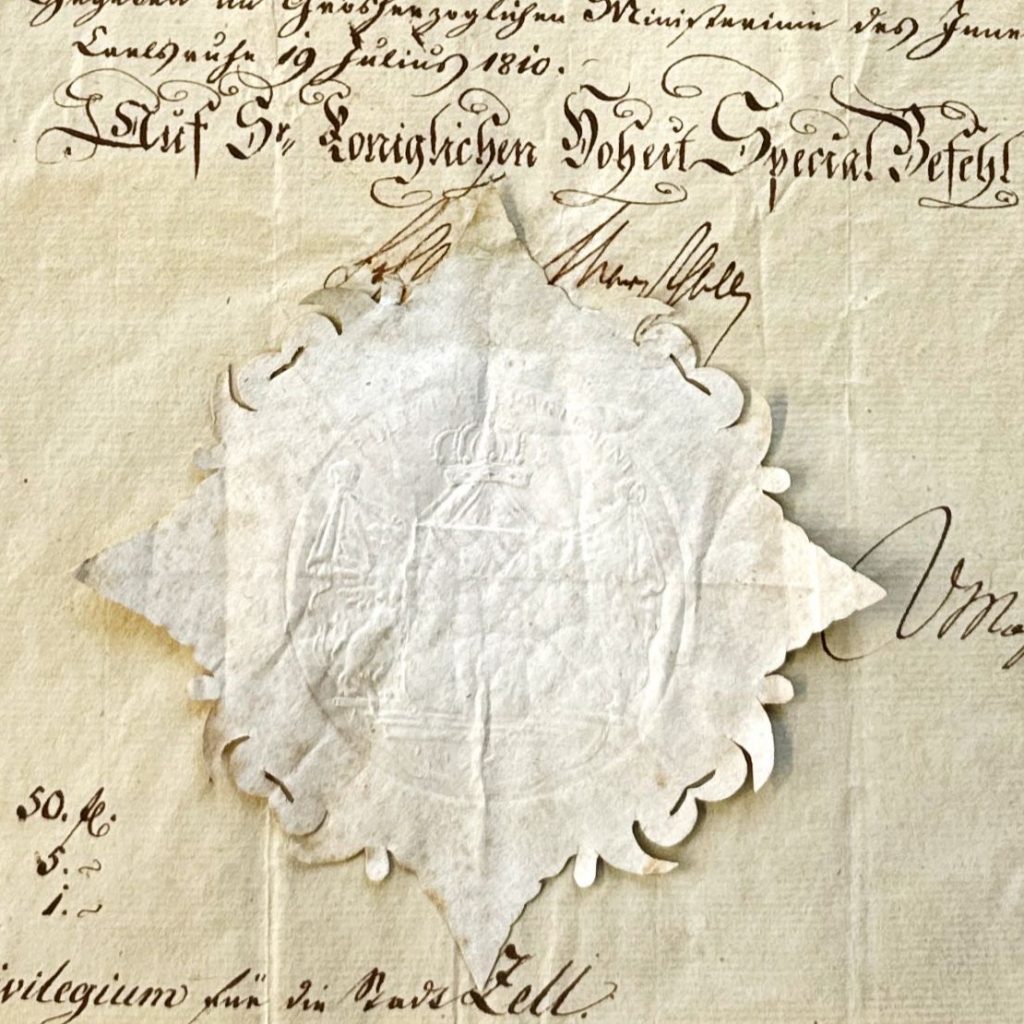 Gegeben im Grosherzoglichen Ministerium des Inne
Carlsruhe 19 Julius 1810.
Auf Sr. Königlichen Hoheit Special Befehl
50. fl.
5. ~
1. ~
ivilegium für die Stadt Zell.